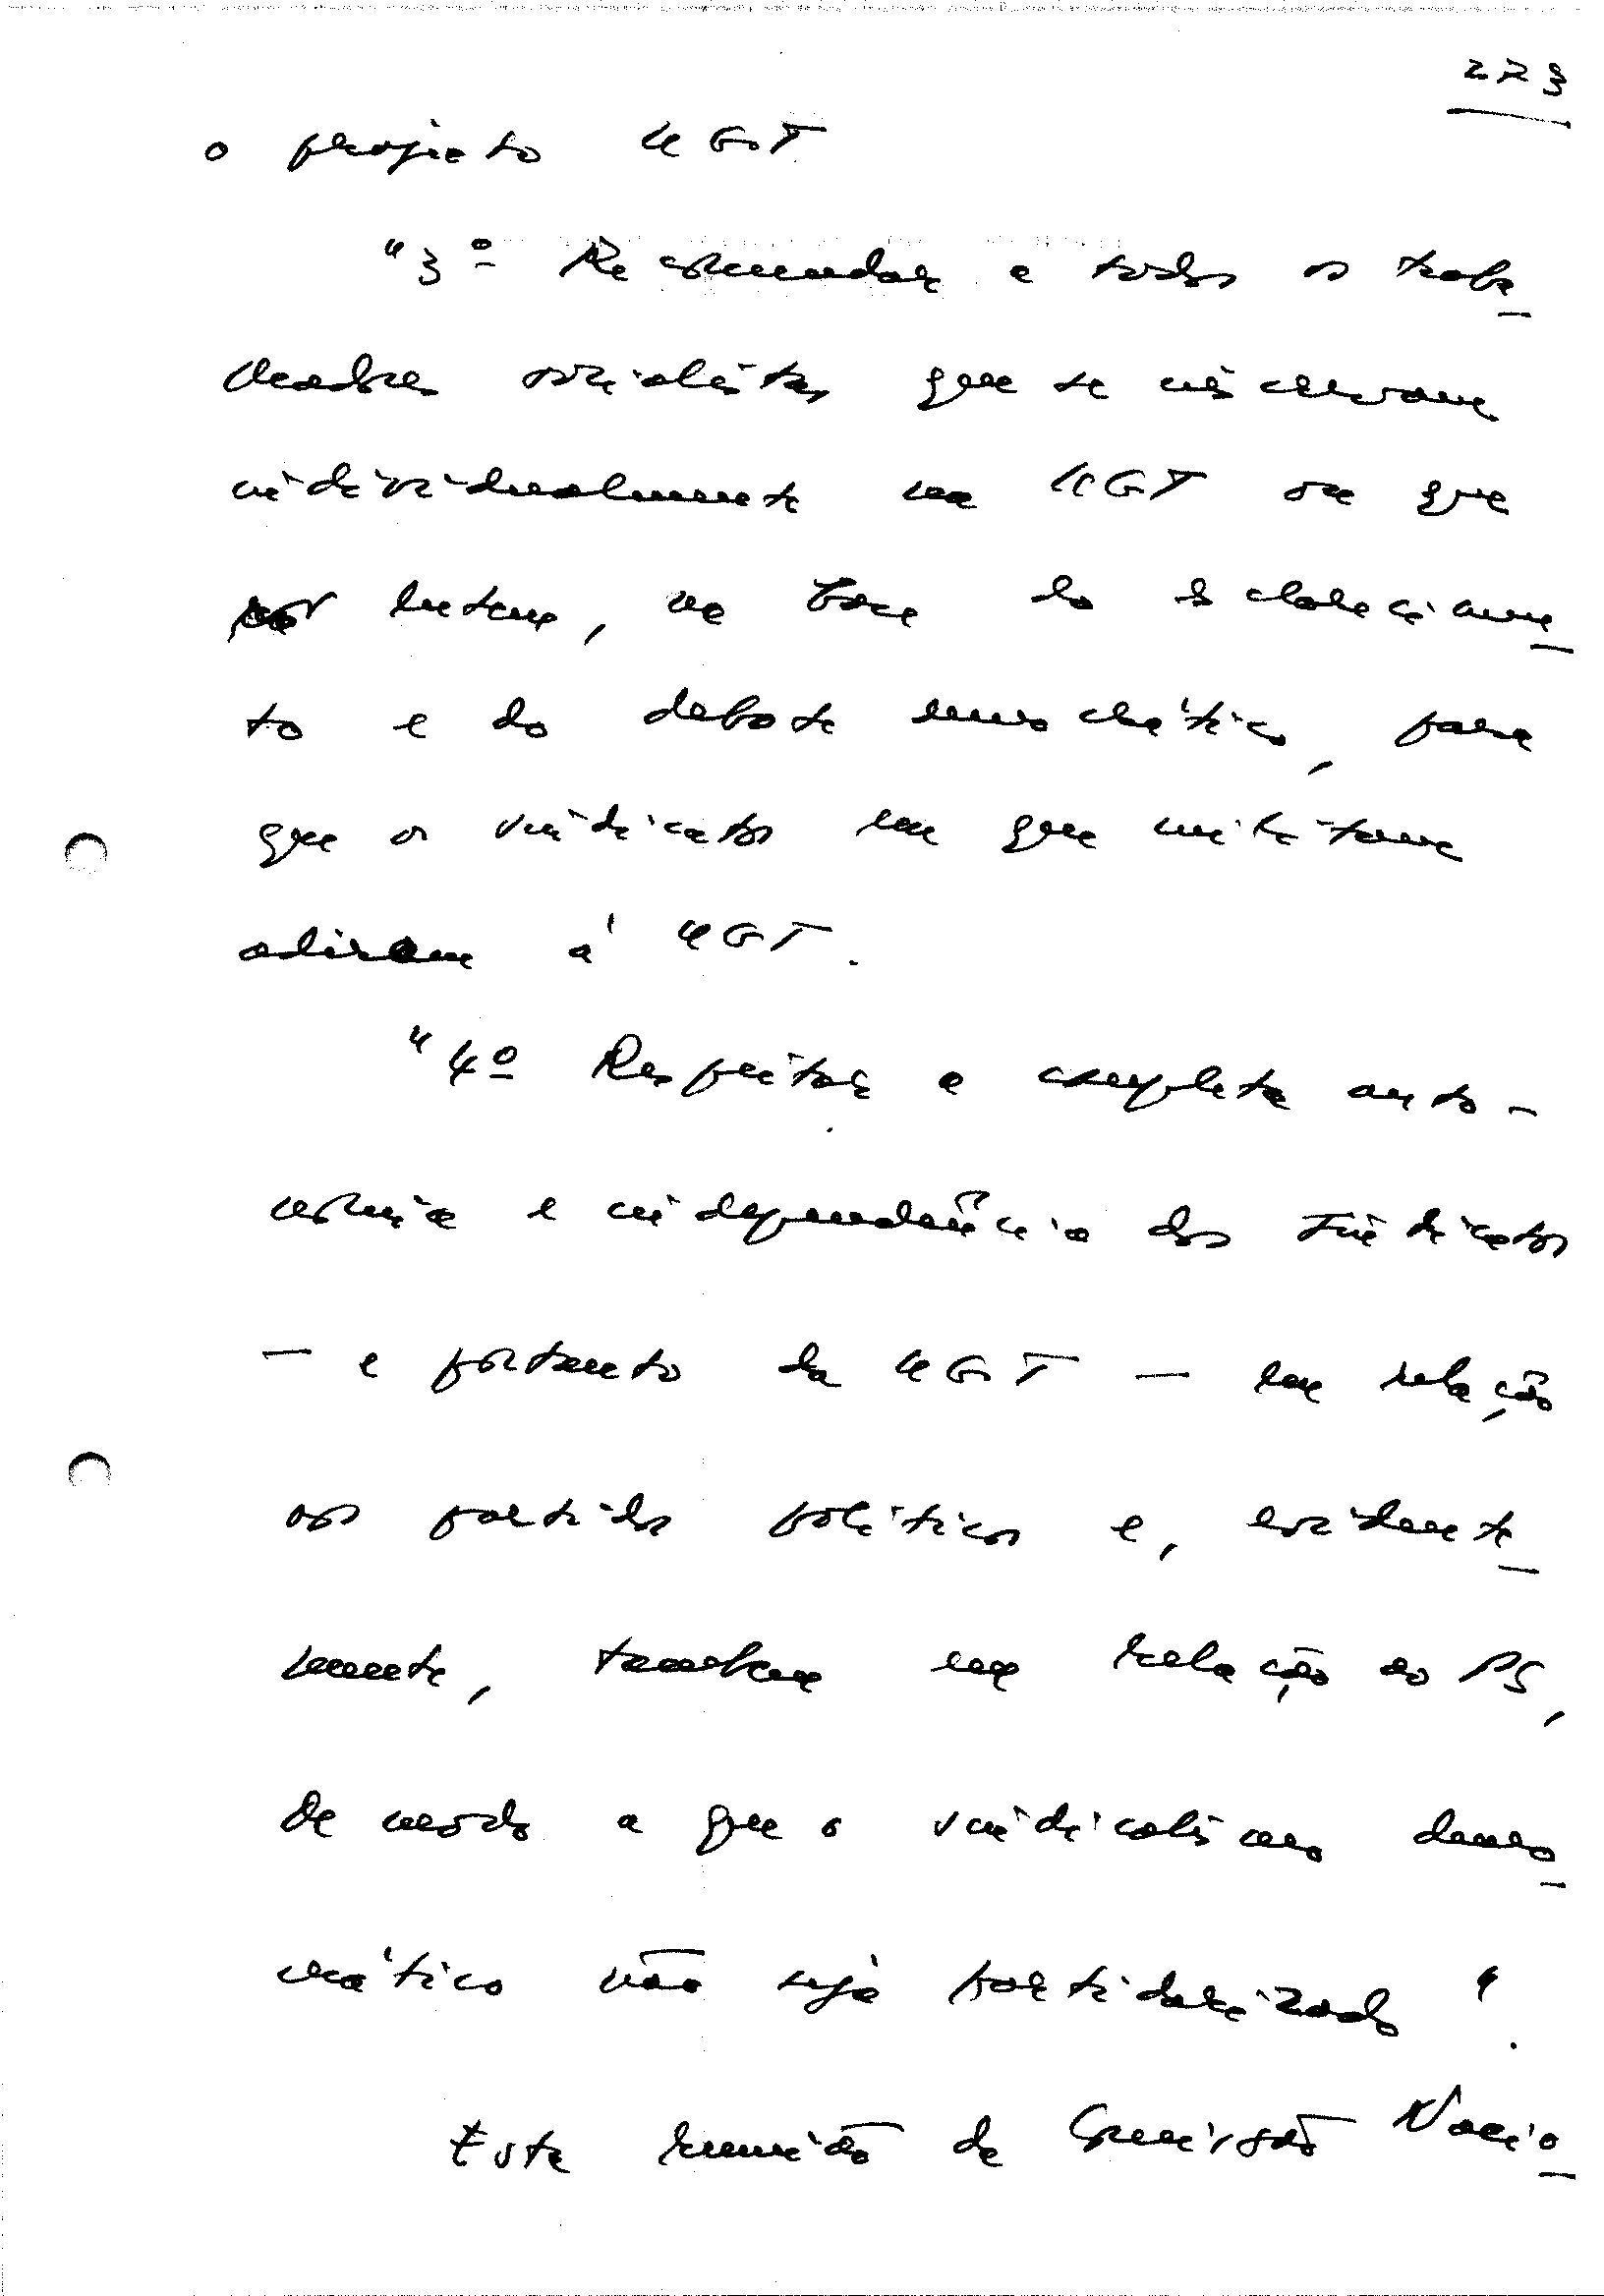 273
o projecto UGT
"3º Recomendar a todos os traba_
lhadores socialistas que se inscrevam
individualmente na UGT ou que
lutem, na base do esclarecimen_
to e do debate democrático, para
que os sindicatos em que militam
adiram à UGT.
"4º Respeitar a completa auto-
nomia e independência dos sindicatos
— e portanto da UGT — em relação
aos partidos políticos e, evidente_
mente, também em relação ao PS,
de modo a que o sindicalismo demo_
crático não seja partidarizado".
Esta reunião da Comissão Nacio_